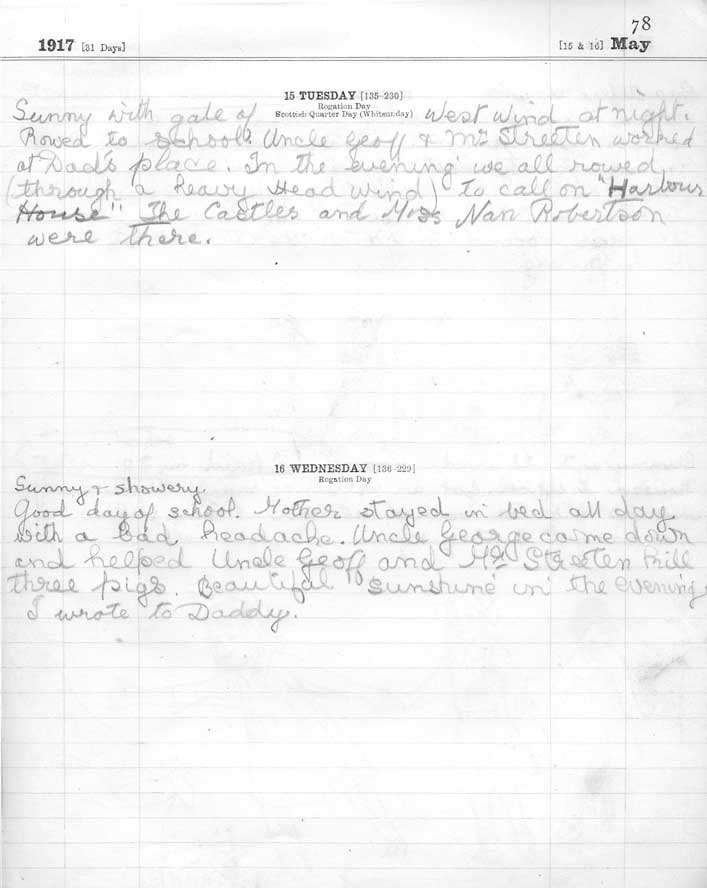 78
1917 [31 Days] [15 & 16] May
15 TUESDAY [135-230]
Rogation Day
Scottish Quarter Day (Whitsunday)
Sunny with gale of West Wind at night.
Rowed to school. Uncle Geoff & Mr Streeten worked
at Dad's place. In the evening we all rowed
(through a heavy Head Wind) to call on "Harbour
House" The Castles and Miss Nan Robertson
were there.
16 WEDNESDAY [136-229]
Rogation Day
Sunny & showery.
Good day of school. Mother stayed in bed all day
with a bad headache. Uncle George came down
and helped Uncle Geoff and Mr Streeten kill
three pigs. Beautiful sunshine in the evening
I wrote to Daddy.